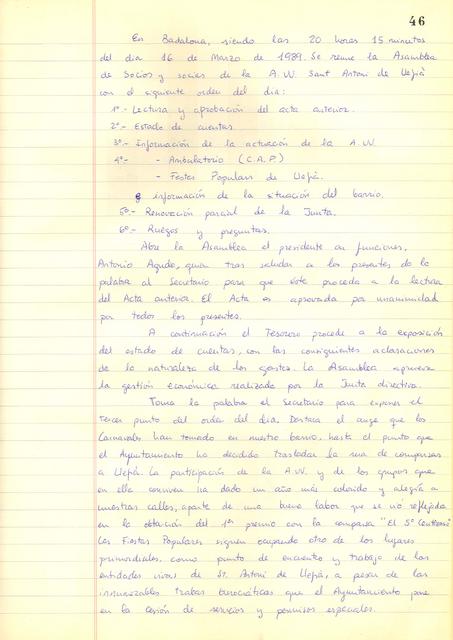 46
En Badalona, siendo las 20 horas 15 minutos
del dia 16 de Marzo de 1989. Se reune la Asamblea
de Socios y socias de la A.VV. Sant Antoni de Llefià
con el siguiente orden del dia:
1º.- Lectura y aprobación del acta anterior.
2º.- Estado de cuentas.
3º.- Información de la actuación de la A.VV
4º.- - Ambulatorio (C.A.P.)
- Festes Populars de Llefià.
e información de la situación del barrio.
5º.- Renovación parcial de la Junta.
6º.- Ruegos y preguntas.
Abre la Asamblea el presidente en funciones,
Antonio Agudo, quien tras saludar a los presentes da la
palabra al Secretario para que éste proceda a la lectura
del Acta anterior. El Acta es aprovada por unanimidad
por todos los presentes.
A continuación el Tesorero procede a la exposición
del estado de cuentas, con las consiguientes aclaraciones
de la naturaleza de los gastos. La Asamblea aprueva
la gestión económica realizada por la Junta directiva.
Toma la palabra el Secretario para exponer el
tercer punto del orden del dia. Destaca el auge que los
Carnavales han tomado en nuestro barrio, hasta el punto que
el Ayuntamiento ha decidido trasladar la rua de comparsas
a Llefià. La participación de la A.VV. y de los grupos que
en ella conviven ha dado un año más colorido y alegria a
nuestras calles, aparte de una buena labor que se vió reflejada
en la obtención del 1er premio con la comparsa "El 5º
Las Fiestas Populares siguen ocupando otro de los lugares
primordiales, como punto de encuentro y trabajo de las
entidades vivas de St. Antoni de Llefià, a pesar de las
innumerables trabas burocráticas que el Ayuntamiento pone
en la cesión de servicios y permisos especiales.